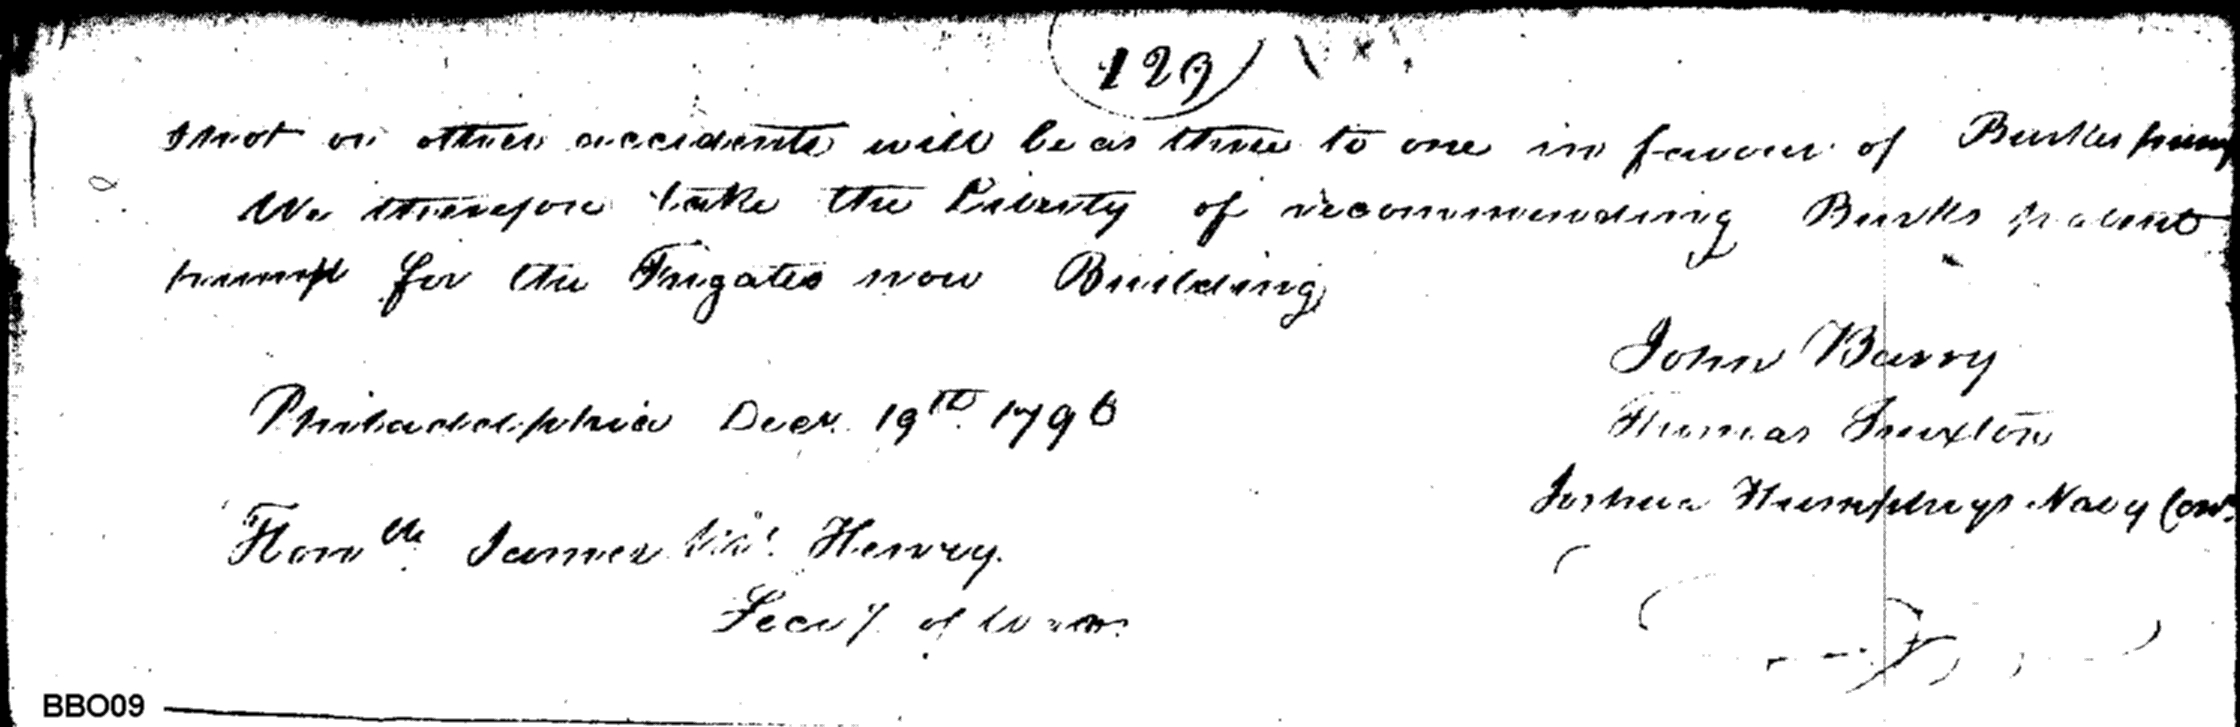 129
Shot or other accidents will be as three to one in favour of Burks pump
We therefore take the Liberty of recommending Burks patent
pump for the Frigates now Building
John Barry
Philadelphia Decr. 19th 1796
Thomas Truxton
Joshua Humphreys Navy Cons
Honble James Henry.
Secy. of War.
BBO09